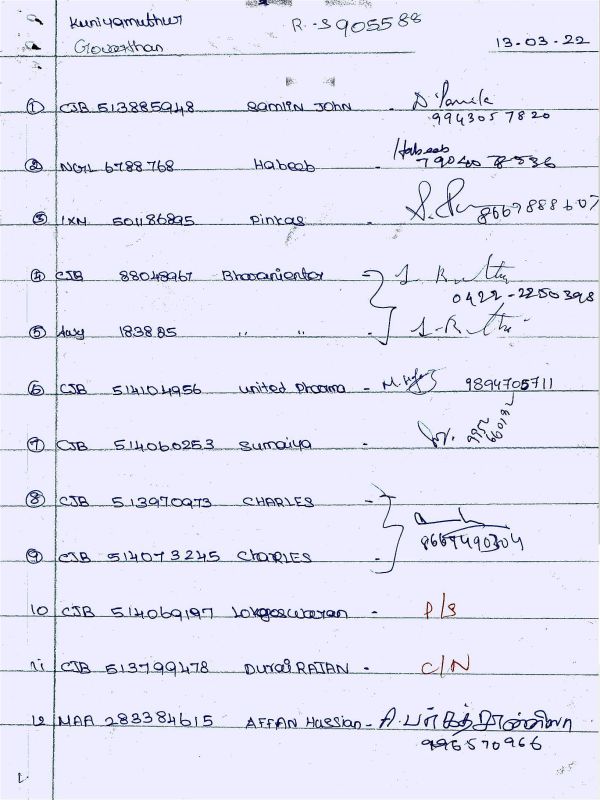 Kuniyamuthur R.-S 9055 88
Goverthan 13.03.22
① CJB 513885948 Samlin JOHN -
9943057820
② NGL 6788768 Habeeb - Habeeb
7904078536
③ IXN 501186895 Pinkas - 8667888607
④ CJB 88048967
0422-2250398
⑤ 183885 " " -
⑥ CJB 514104956 United Pharma - 9894705711
⑦ CJB 514060253 Sumaiya -
⑧ CJB 513970973 CHARLES -
8667490304
⑨ CJB 514073245 CHARLES -
10 CJB 514069197 Lokgaswaran - P/S
11 CJB 513799478 Durai RAJAN - C/N
12 MAA 283384615 AFFAN Hassian -
996570966